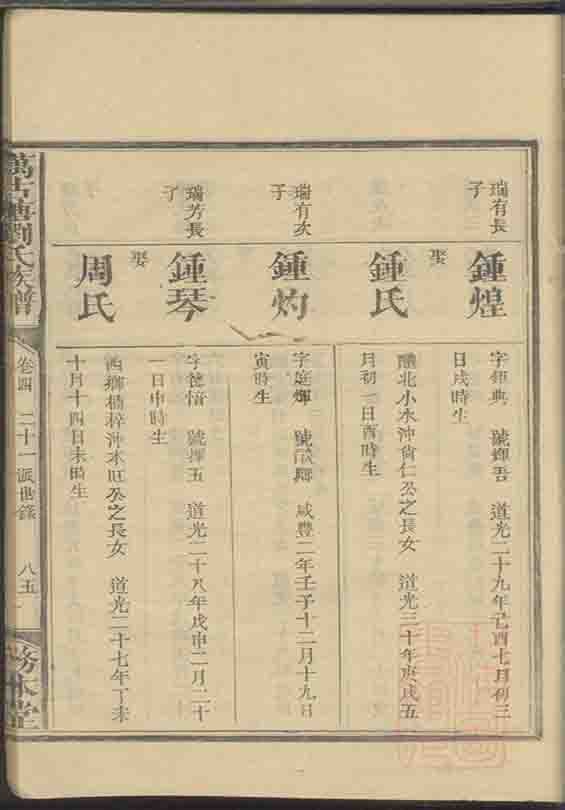 瑞有長
子
鍾煌
字鉅典 號輝吾 道光二十九年己酉七月初三
日戌時生
娶
鍾氏
醴北小水沖尙仁公之長女 道光三十年庚戌五
月初一日酉時生
瑞有次
子
鍾灼
字庭輝 號 咸豐二年壬子十二月十九日
寅時生
瑞芳長
子
鍾琴
字德愔 號揮五 道光二十八年戊申二月二十
一日申時生
娶
周氏
西鄉楠梓沖本旺公之長女 道光二十七年丁未
十月十四日未時生
萬古塘劉氏族譜
卷四 二十一派世錄
八五
務本堂